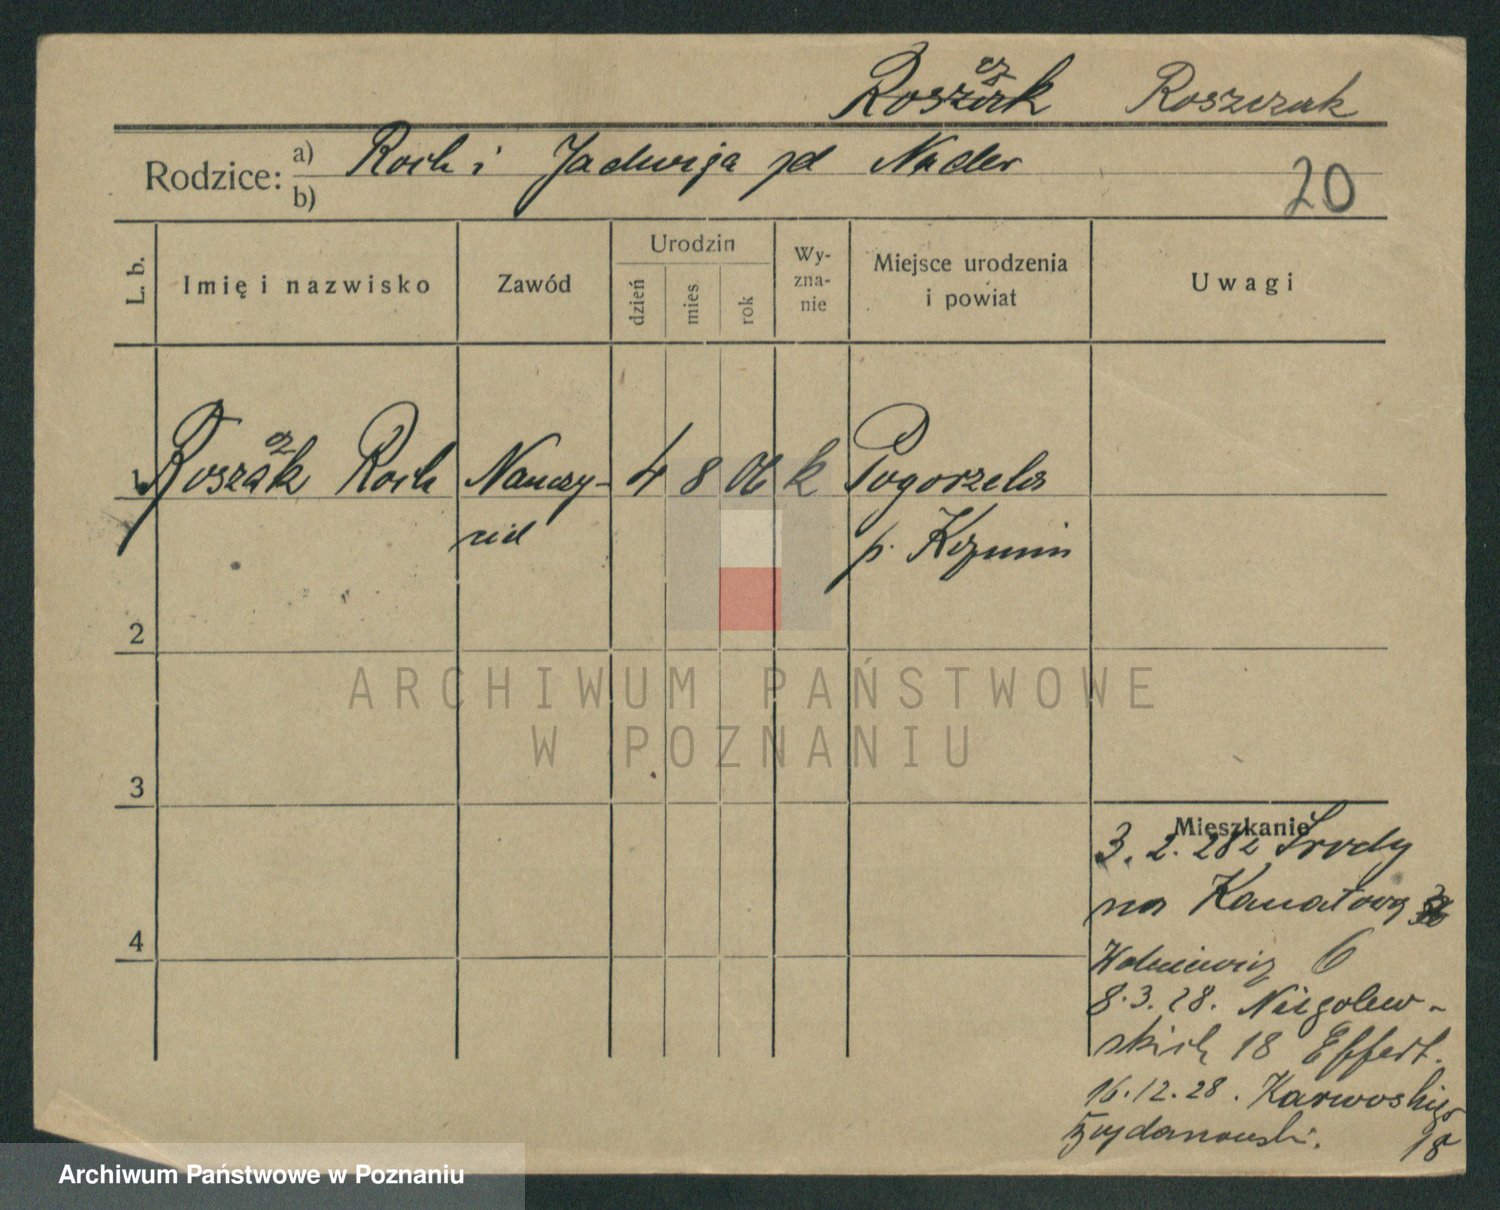 Roszczak Roszczak
Rodzice: a) Roch i Jadwiga zd Nader
b)
20
L. b. Imię i nazwisko Zawód Urodzin dzień mies rok Wy-zna-nie Miejsce urodzenia i powiat Uwagi
1 Roszczak Roch Nauczy- 4 8 06 k Pogorzela
ciel p. Koźmin
2
3
4
Mieszkanie
3. 2. 28 z Środy
na Kanałową
6
8.3.28. Niegolew-
skich 18 Effert.
16.12.28. Karwowskiego
Bogdanowski. 18
ARCHIWUM PAŃSTWOWE
W POZNANIU
Archiwum Państwowe w Poznaniu